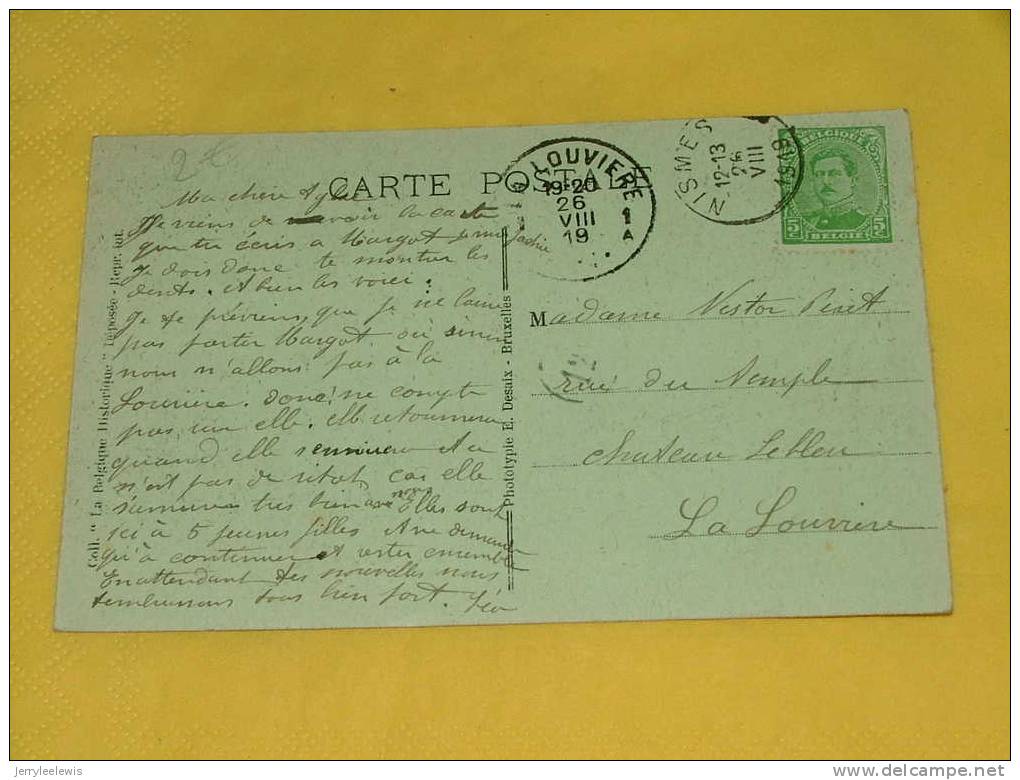 2 €
CARTE POSTALE
LOUVIERE
19-20
26
VIII
19
1 A
NISMES
12-13
26
VIII
1919
BELGIQUE
5 5
BELGIË
Ma chère
Je viens de voir la carte
que tu écris a Margot
je dois donc te montrer les
dents. et bien les voici.
Je te préviens, que je ne laisse
pas partir Margot. ou sinon
nous n'allons pas à la
Louvière. donc, ne compte
pas sur elle. elle retournera
quand elle
n'est pas de sitot, car elle
s'amuse très bien avec nous Elles sont
ici à 5 jeunes filles et ne demandent
qu'à continuer et rester ensemble
En attendant des nouvelles nous
t'embrassons tous bien fort. Léa
Coll. " La Belgique Historique " Déposée - Repr. int.
Phototypie E. Desaix - Bruxelles
Madame Nestor Piret
rue du Temple
chateau Lebleu
La Louvière
jerryleelewis
http://www.delcampe.net